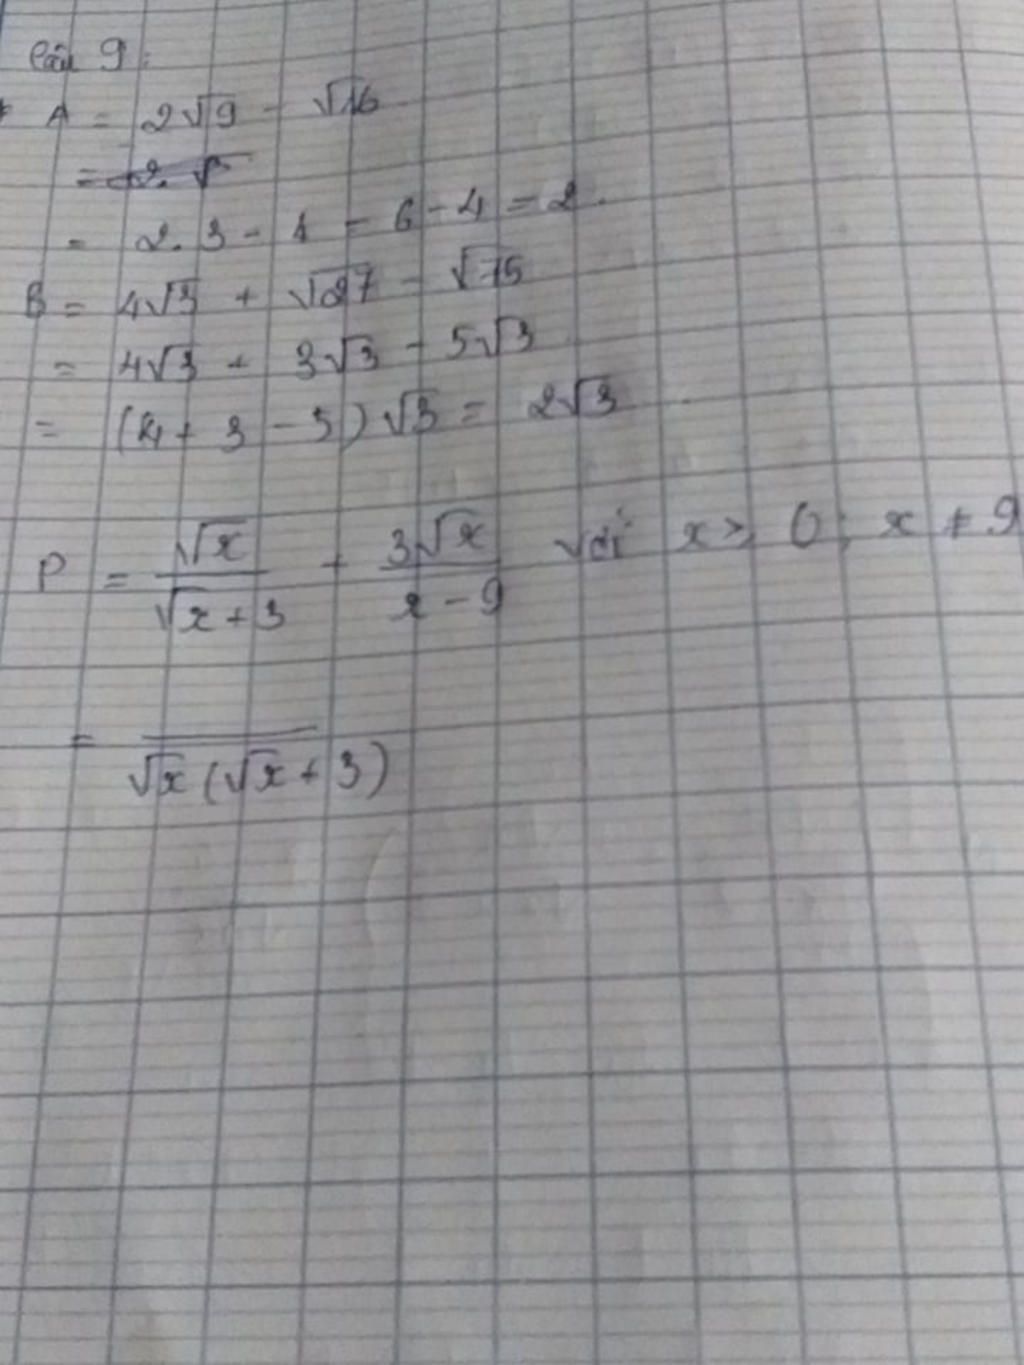 Câu 9:
A = 2√9 - √16
= 2. √
= 2. 3 - 4 = 6 - 4 = 2.
B = 4√3 + √27 - √75
= 4√3 + 3√3 - 5√3
= (4 + 3 - 5) √3 = 2√3
P = √x / (√x + 3) + 3√x / (x - 9) với x ≥ 0; x ≠ 9
= / √x (√x + 3)